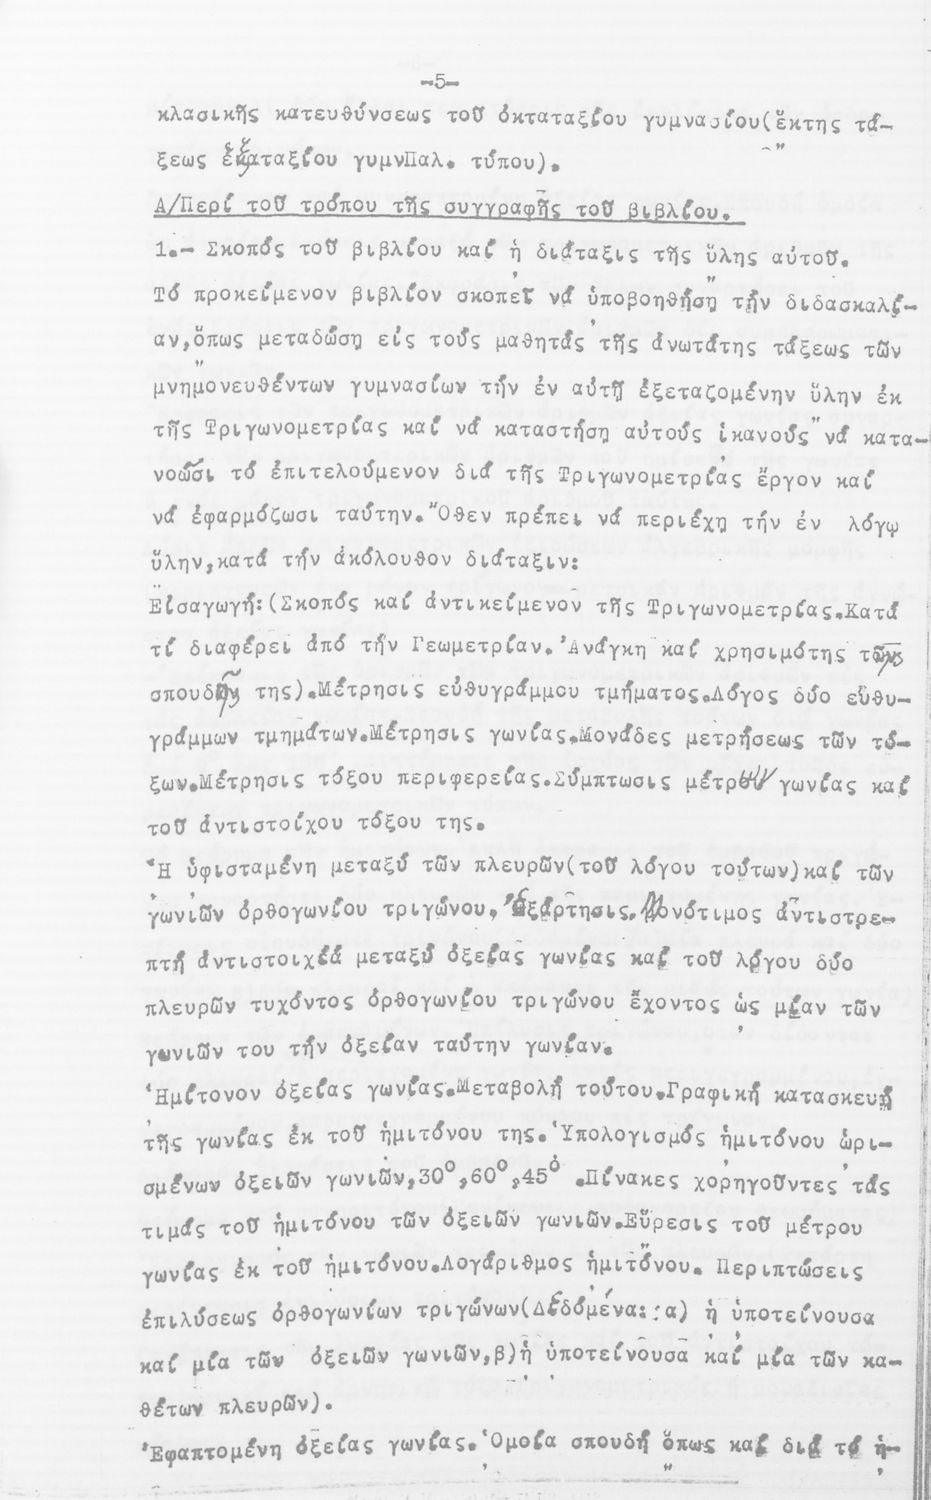 -5-
κλασικῆς κατευθύνσεως τοῦ ὀκταταξίου γυμνασίου(ἕκτης τά-
ξεως ἑξαταξίου γυμνΠαλ. τύπου).
Α/Περί τοῦ τρόπου τῆς συγγραφῆς τοῦ βιβλίου.
1.- Σκοπός τοῦ βιβλίου καί ἡ διάταξις τῆς ὕλης αὐτοῦ.
Τό προκείμενον βιβλίον σκοπεῖ νά ὑποβοηθήσῃ τήν διδασκαλί-
αν,ὅπως μεταδώσῃ εἰς τούς μαθητάς τῆς ἀνωτάτης τάξεως τῶν
μνημονευθέντων γυμνασίων τήν ἐν αὐτῇ ἐξεταζομένην ὕλην ἐκ
τῆς Τριγωνομετρίας καί νά καταστήσῃ αὐτούς ἱκανούς νά κατα-
νοῶσι τό ἐπιτελούμενον διά τῆς Τριγωνομετρίας ἔργον καί
νά ἐφαρμόζωσι ταύτην.Ὅθεν πρέπει νά περιέχῃ τήν ἐν λόγῳ
ὕλην,κατά τήν ἀκόλουθον διάταξιν:
Εἰσαγωγή:(Σκοπός καί ἀντικείμενον τῆς Τριγωνομετρίας.Κατά
τί διαφέρει ἀπό τήν Γεωμετρίαν.Ἀνάγκη καί χρησιμότης τῆς
σπουδῆς της).Μέτρησις εὐθυγράμμου τμήματος.Λόγος δύο εὐθυ-
γράμμων τμημάτων.Μέτρησις γωνίας.Μονάδες μετρήσεως τῶν τό-
ξων.Μέτρησις τόξου περιφερείας.Σύμπτωσις μέτρου γωνίας καί
τοῦ ἀντιστοίχου τόξου της.
Ἡ ὑφισταμένη μεταξύ τῶν πλευρῶν(τοῦ λόγου τούτων)καί τῶν
γωνιῶν ὀρθογωνίου τριγώνου, ἐξάρτησις.Μονότιμος ἀντιστρε-
πτή ἀντιστοιχία μεταξύ ὀξείας γωνίας καί τοῦ λόγου δύο
πλευρῶν τυχόντος ὀρθογωνίου τριγώνου ἔχοντος ὡς μίαν τῶν
γωνιῶν του τήν ὀξεῖαν ταύτην γωνίαν.
Ἡμίτονον ὀξείας γωνίας.Μεταβολή τούτου.Γραφική κατασκευή
τῆς γωνίας ἐκ τοῦ ἡμιτόνου της.Ὑπολογισμός ἡμιτόνου ὡρι-
σμένων ὀξειῶν γωνιῶν,30°,60°,45° .Πίνακες χορηγοῦντες τάς
τιμάς τοῦ ἡμιτόνου τῶν ὀξειῶν γωνιῶν.Εὕρεσις τοῦ μέτρου
γωνίας ἐκ τοῦ ἡμιτόνου.Λογάριθμος ἡμιτόνου. Περιπτώσεις
ἐπιλύσεως ὀρθογωνίων τριγώνων(Δεδομένα: :α) ἡ ὑποτείνουσα
καί μία τῶν ὀξειῶν γωνιῶν,β)ἡ ὑποτείνουσα καί μία τῶν κα-
θέτων πλευρῶν).
Ἐφαπτομένη ὀξείας γωνίας.Ὁμοία σπουδή ὅπως καί διά τό ἡ-